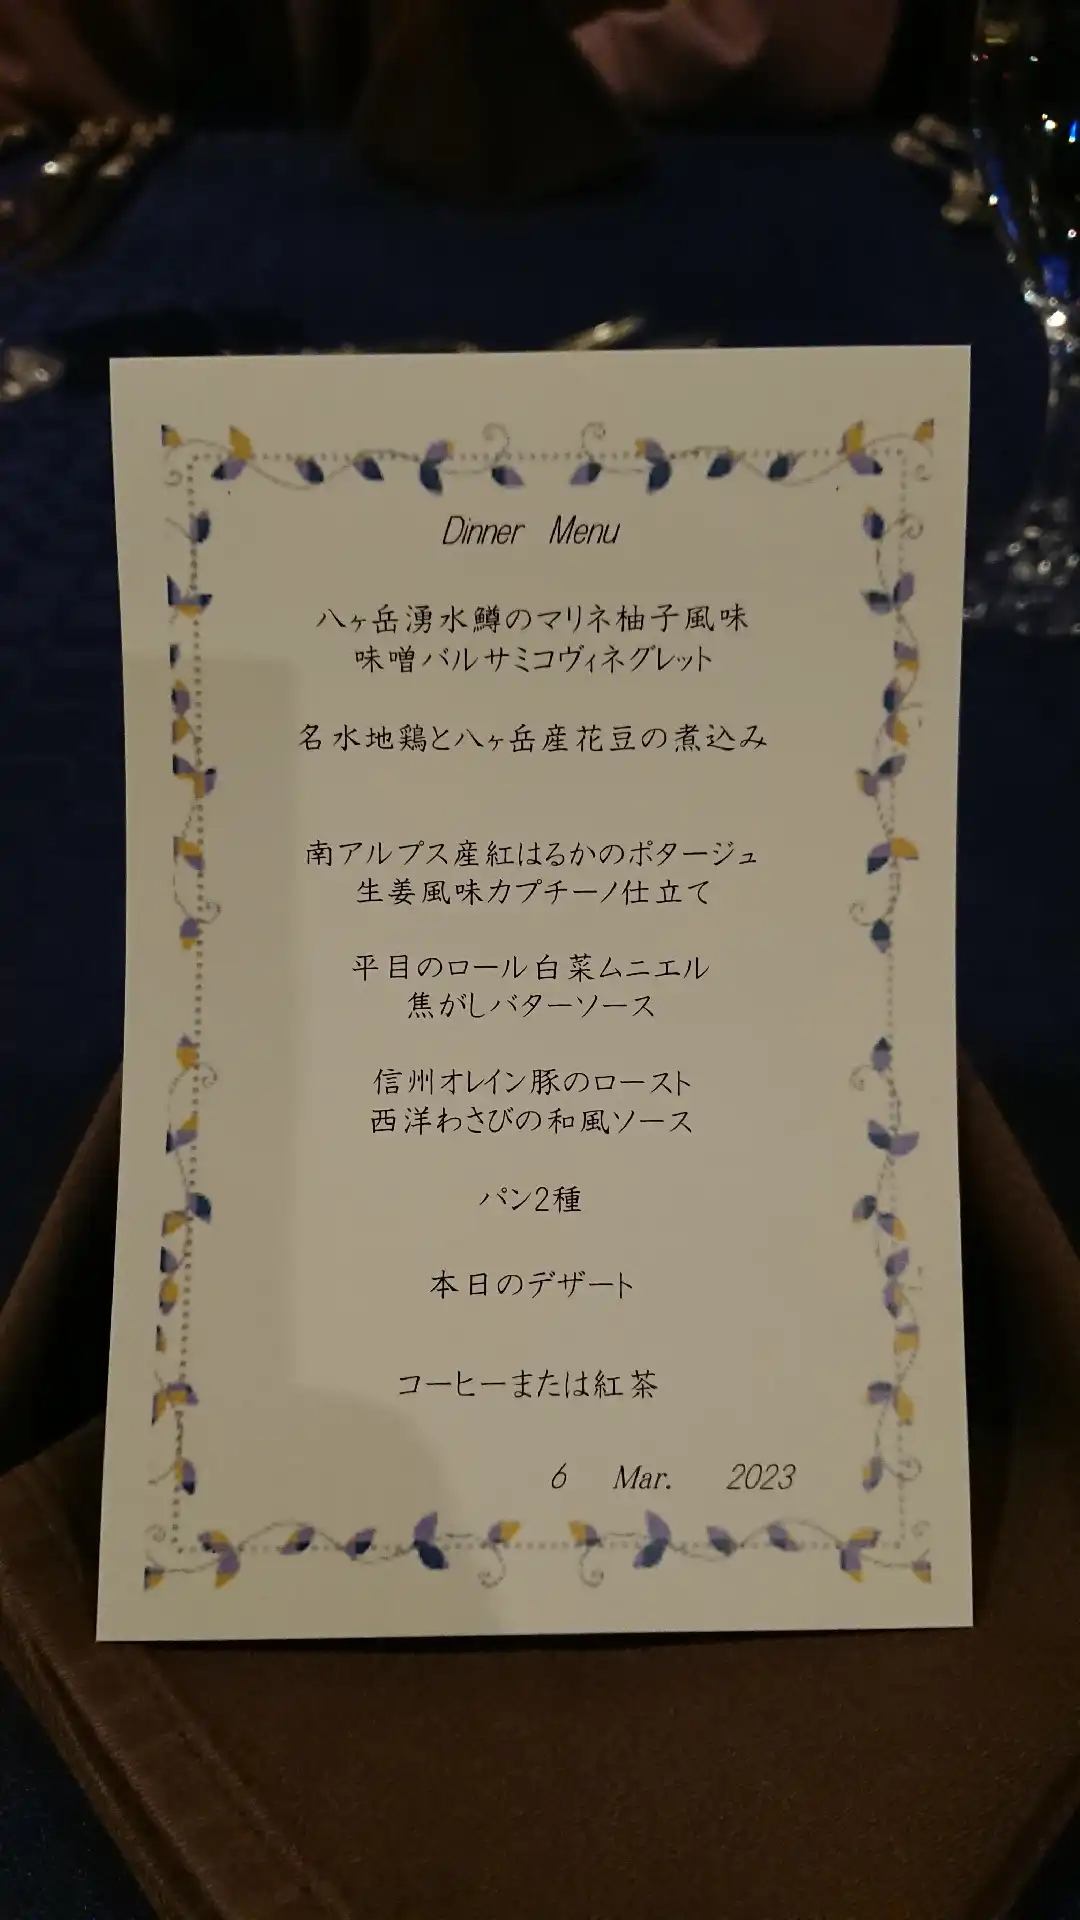 Dinner Menu
八ヶ岳湧水鱒のマリネ柚子風味
味噌バルサミコヴィネグレット
名水地鶏と八ヶ岳産花豆の煮込み
南アルプス産紅はるかのポタージュ
生姜風味カプチーノ仕立て
平目のロール白菜ムニエル
焦がしバターソース
信州オレイン豚のロースト
西洋わさびの和風ソース
パン2種
本日のデザート
コーヒーまたは紅茶
6 Mar. 2023